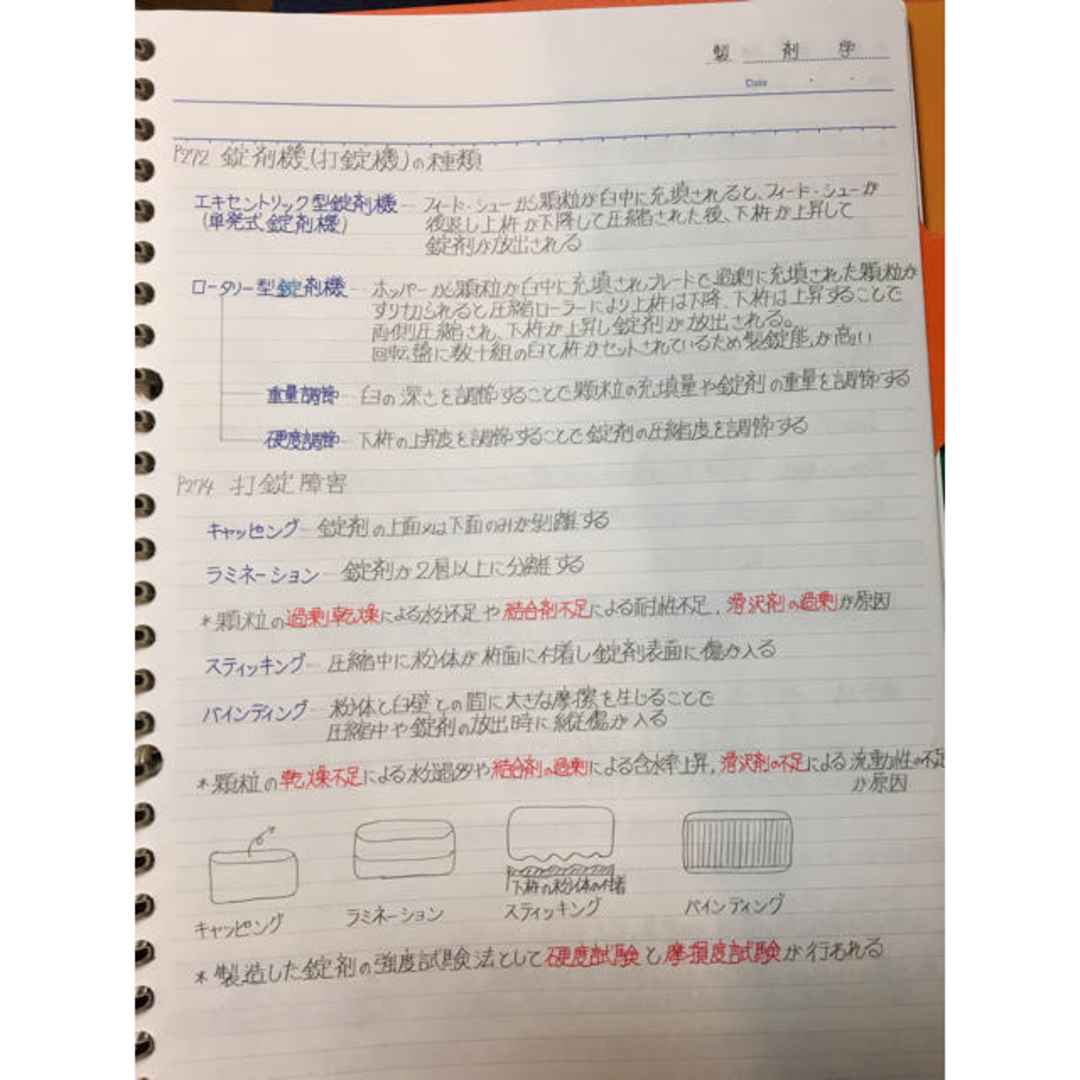 製剤学
Date
P272 錠剤機(打錠機)の種類
エキセントリック型錠剤機 ─ フィード・シューから顆粒が臼中に充填されると、フィード・シューが
(単発式錠剤機) 後退し上杵が下降して圧縮された後、下杵が上昇して
錠剤が放出される
ロータリー型錠剤機 ─ ホッパーから顆粒が臼中に充填されプレートで過剰に充填された顆粒が
すり切られると圧縮ローラーにより上杵は下降、下杵は上昇することで
両側圧縮され、下杵が上昇し錠剤が放出される。
回転盤に数十組の臼と杵がセットされているため製錠能が高い
重量調節 ─ 臼の深さを調節することで顆粒の充填量や錠剤の重量を調節する
硬度調節 ─ 下杵の上昇度を調節することで錠剤の圧縮度を調節する
P274 打錠障害
キャッピング ─ 錠剤の上面又は下面のみが剥離する
ラミネーション ─ 錠剤が2層以上に分離する
*顆粒の過剰乾燥による水分不足や結合剤不足による耐性不足、滑沢剤の過剰が原因
スティッキング ─ 圧縮中に粉体が杵面に付着し錠剤表面に傷が入る
バインディング ─ 粉体と臼壁との間に大きな摩擦を生じることで
圧縮中や錠剤の放出時に縦傷が入る
*顆粒の乾燥不足による水分過多や結合剤の過剰による含水率上昇、滑沢剤の不足による流動性の不足
が原因
下杵の粉体の付着
キャッピング ラミネーション スティッキング バインディング
*製造した錠剤の強度試験法として硬度試験と摩損度試験が行われる